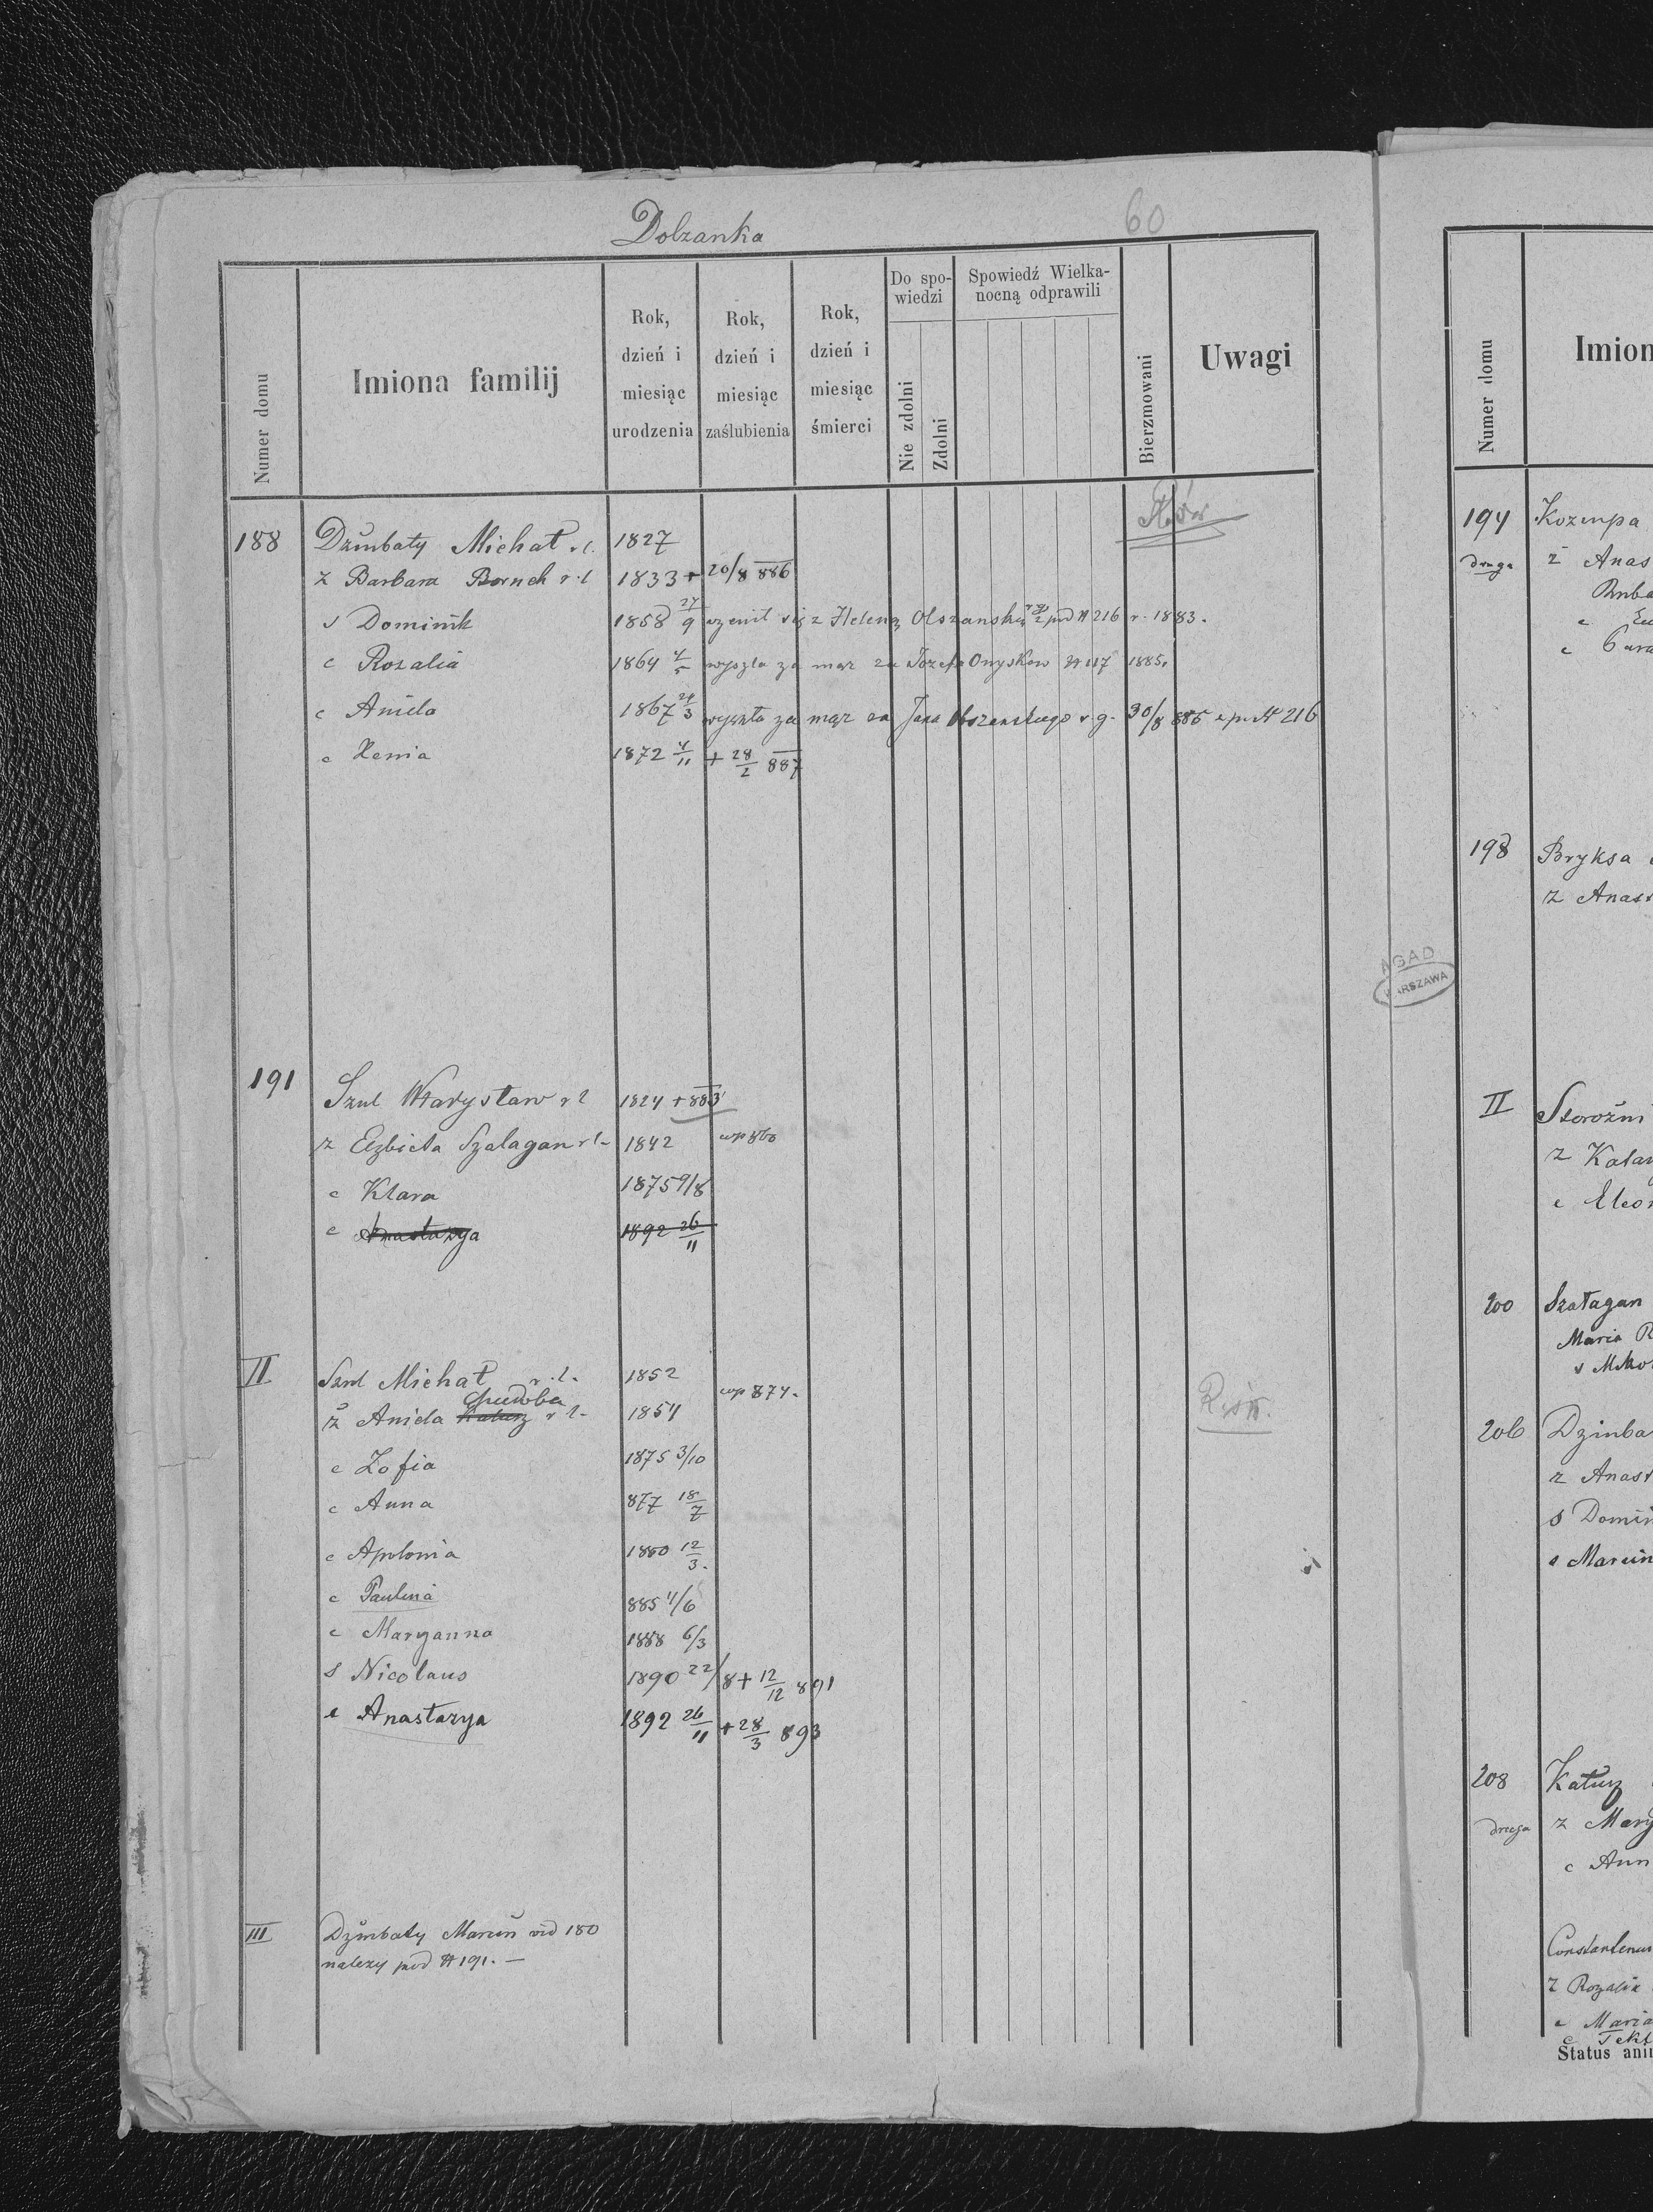 Dolzanka
60
Numer domu
Imiona familij
Rok, dzień i miesiąc urodzenia
Rok, dzień i miesiąc zaślubienia
Rok, dzień i miesiąc śmierci
Do spowiedzi
Nie zdolni
Zdolni
Spowiedź Wielkanocną odprawili
Bierzmowani
Uwagi
188 Dzúmbaty Michał r.l. 1827
ż Barbara r.l 1833 + 20/8 886
s Dominik 1858 27/9 ożenił się z Heleną Olszanską pod N 216 r. 1883.
c Rozalia 1864 4/5 wyszla za mąz za Józefa Onyskow N 117 1885.
c Aniela 1867 24/3 wyszła za mąz za Jana Olszanskiego r.g. 30/8 885 N 216
c Xenia 1872 4/11 + 28/2 887
191 Szul Władysław r l 1824 + 883
ż Elzbieta Szalagan r l- 1842 wp 860
c Klara 1875 9/8
c Anastazya 1892 26/11
II Szul Michał r.l. 1852
ż Aniela Katurz r l- 1854 wp 874.
c Zofia 1875 3/10
c Anna 877 18/7
c Apolonia 1880 12/3.
c Paulina 885 11/6
c Maryanna 1888 6/3
s Nicolaus 1890 22/8 + 12/12 891
c Anastazya 1892 26/11 + 28/3 893
III Dzúmbaty Marcin vid 180
nalezy pod N 191. —
AGAD
WARSZAWA
Numer domu
Imion
194 Kozupa
druga ż Anas
198 Bryksa
ż Anas
II Storożni
ż Katar
c Eleon
200 Szałagan
Maria R
s Miko
206 Dzimba
ż Anas
s Domin
s Marcin
208 Katurz
druga ż Mary
c Ann
Constantenus
ż Rozalia
c Maria
c Tekl
Status ani